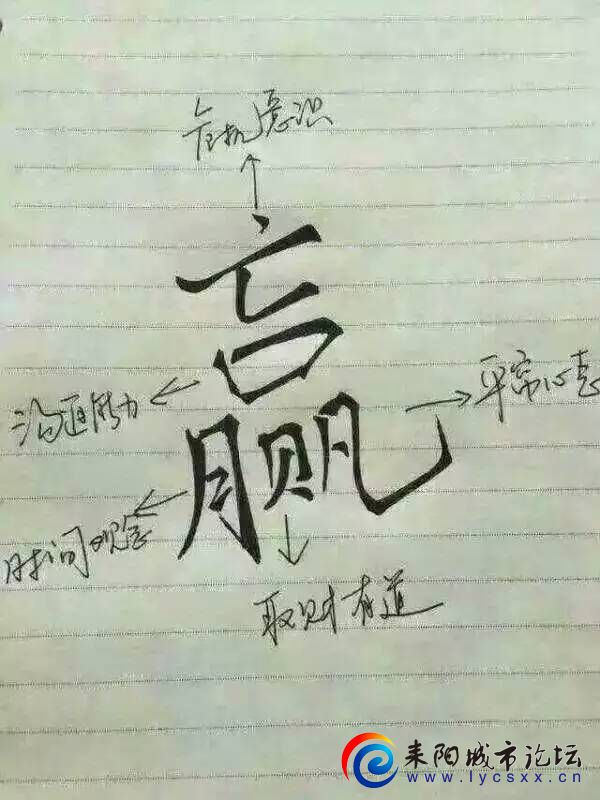 危机意识
赢
沟通能力
平常心态
时间观念
取财有道
耒阳城市论坛
www.lycsxx.cn